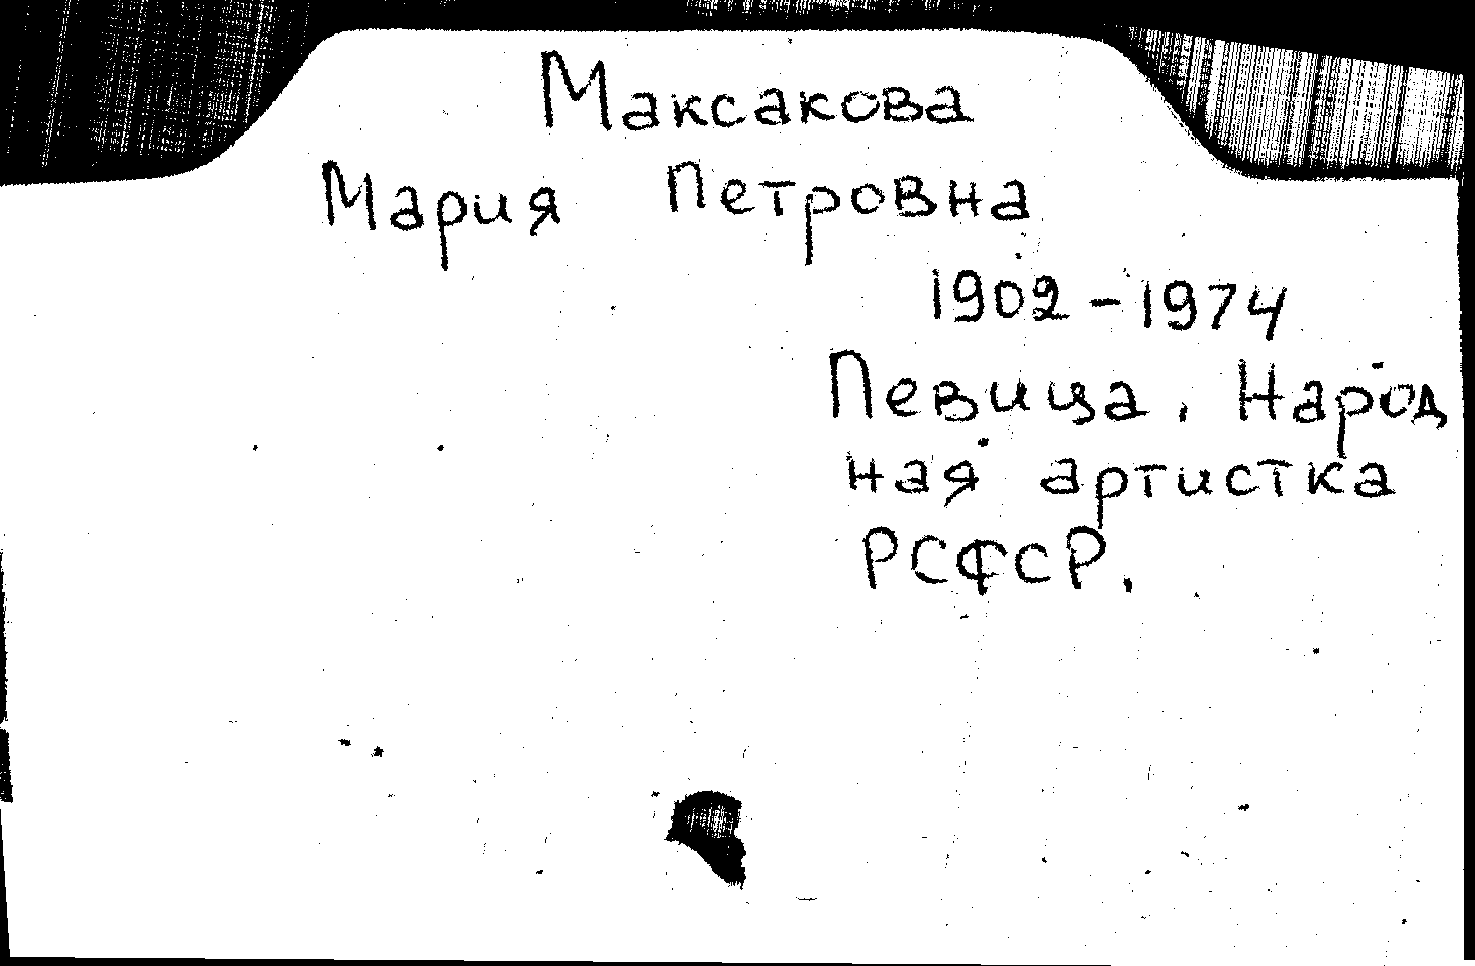 Максакова
Мария Петровна
1902-1974
Певица. Народ
ная артистка
РСФСР.